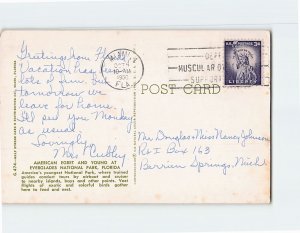 Greetings from Florida
Vacation has been
lots of fun but
tomorrow we
leave for home.
Ill see you Monday
as usual.
Lovingly
Mrs
AMERICAN EGRET AND YOUNG AT
EVERGLADES NATIONAL PARK, FLORIDA
America's youngest National Park, where trained
guides conduct tours by airboat and cruiser
to nearby islands, bays and other points. Vast
flights of exotic and colorful birds gather
here to feed and nest.
10 PM
FLA.
MUSCULAR
SUPPORT
U.S. POSTAGE 3¢
LIBERTY
POST CARD
Mr Douglas + Miss Nancy Johnson
Rt 1 Box 163
Berrien Springs, Mich